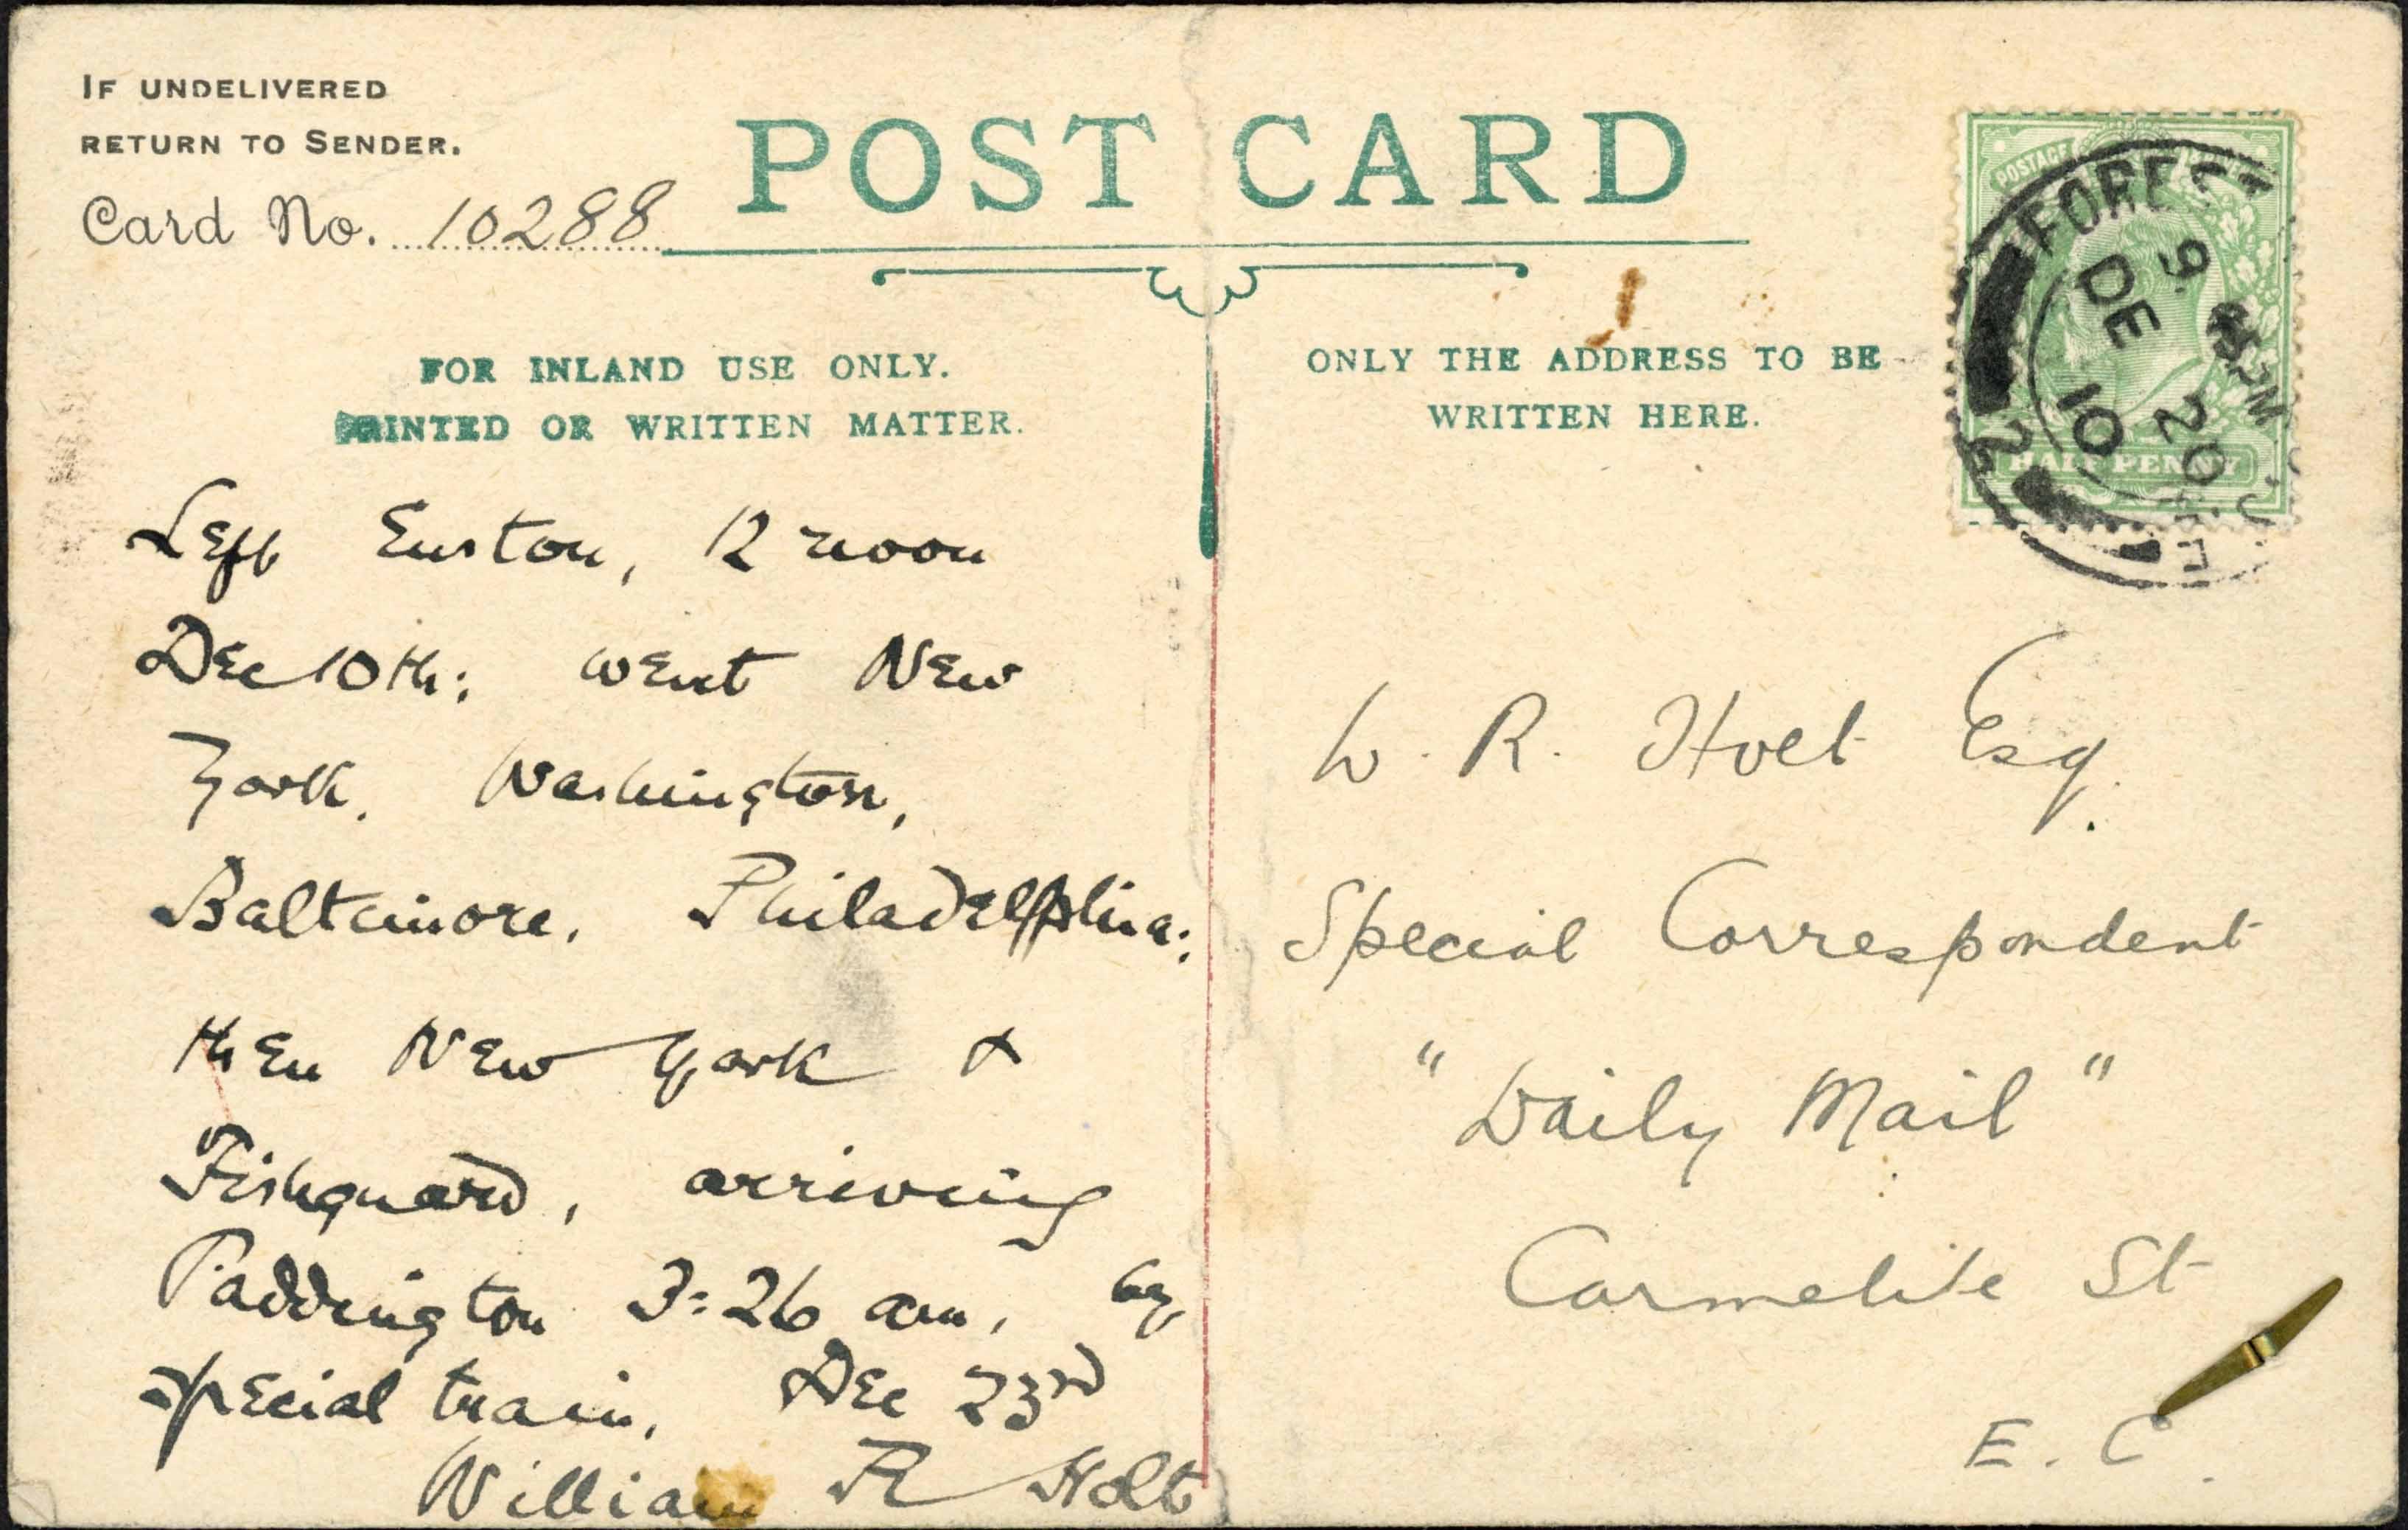 IF UNDELIVERED
RETURN TO SENDER.
Card No. 10288
POST CARD
FOR INLAND USE ONLY.
PRINTED OR WRITTEN MATTER.
Left Euston, 12 noon
Dec 10th: went New
York, Washington,
Baltimore, Philadelphia:
then New York &
Fishguard, arriving
Paddington 3:26 am, by
special train, Dec 23rd
William R Holt
ONLY THE ADDRESS TO BE
WRITTEN HERE.
W. R. Holt Esq.
Special Correspondent
"Daily Mail"
Carmelite St
E. C.
POSTAGE
HALF PENNY
FOREST
DE 20
10
2